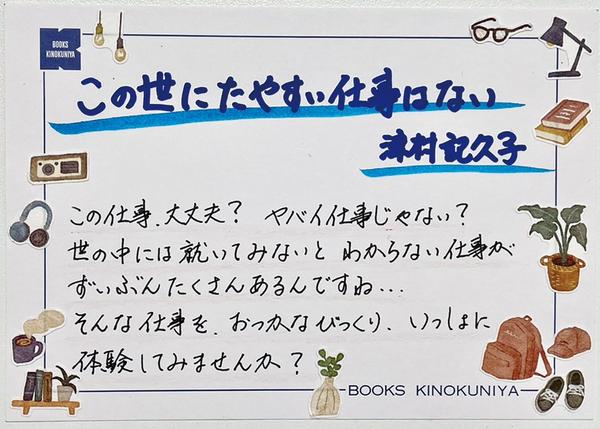 BOOKS
KINOKUNIYA
この世にたやすい仕事はない
津村記久子
この仕事、大丈夫？ ヤバイ仕事じゃない？
世の中には就いてみないと わからない仕事が
ずいぶん たくさんあるんですね...
そんな仕事を、おっかなびっくり、いっしょに
体験してみませんか？
BOOKS KINOKUNIYA